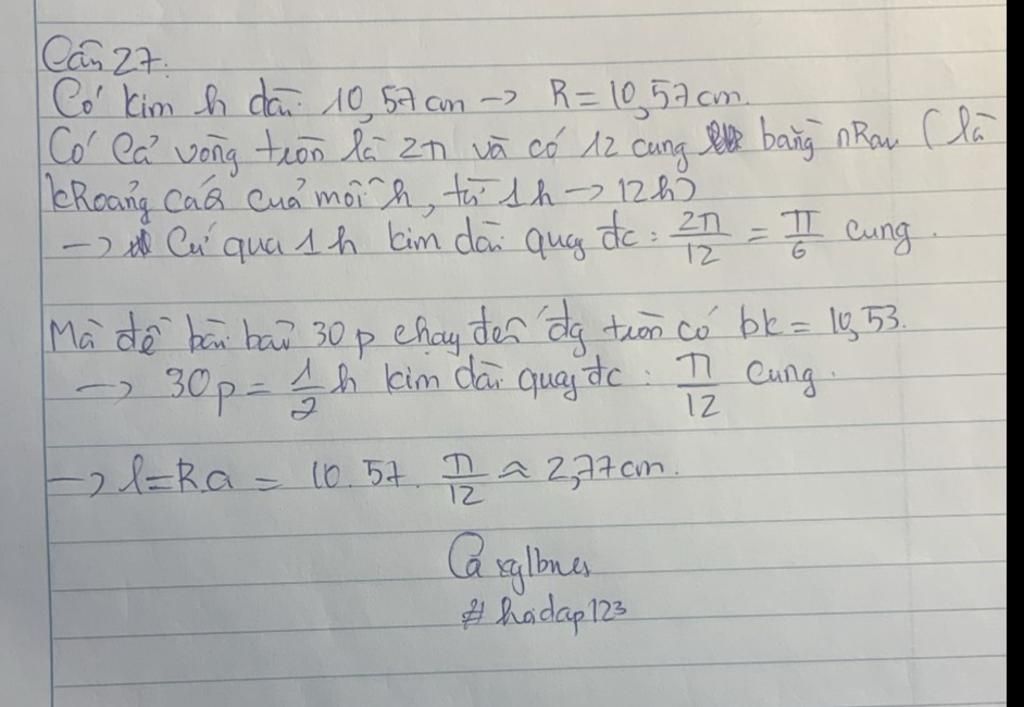 Câu 27:
Có kim h dài 10,57 cm → R = 10,57 cm.
Có cả vòng tròn là 2π và có 12 cung bằng nhau (là
khoảng cách của mỗi h, từ 1h → 12h)
→ Cứ qua 1h kim dài quay đc : 2π/12 = π/6 cung.
Mà đề bài bảo 30p chạy đến đg tròn có bk = 10,53.
→ 30p = 1/2 h kim dài quay đc : π/12 cung.
→ l = R.a = 10.57. π/12 ≈ 2,77 cm.
# hoidap123